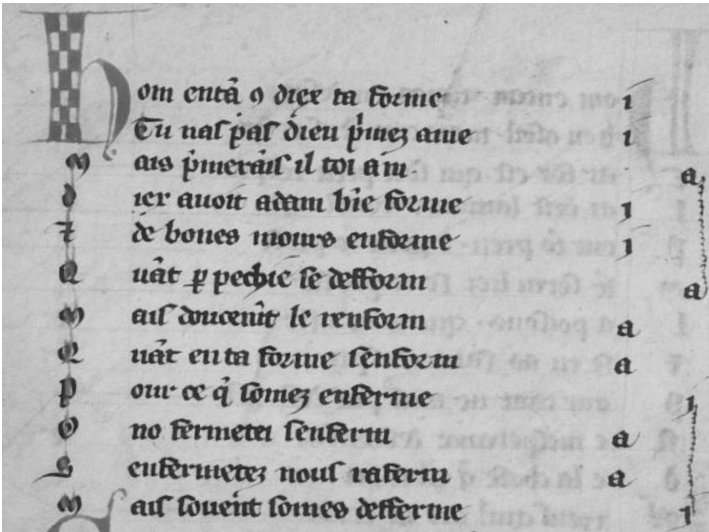 Hom entā ꝯ diex ta forme ı
Tu nas pas dieu p̄miez ame ı
M ais p̄merāıs il toi am a
D iex avoit adam biē forme ı
⁊ de bones mours enforme ı
Q uāt ꝑ pechie se defform a
M ais doucem̄t le renform a
Q uāt en ta forme senform a
P our ce q̄ somez enferme ı
O no fermetei senferm a
S enfermetez nous raferm a
M ais souēnt somes defferme ı